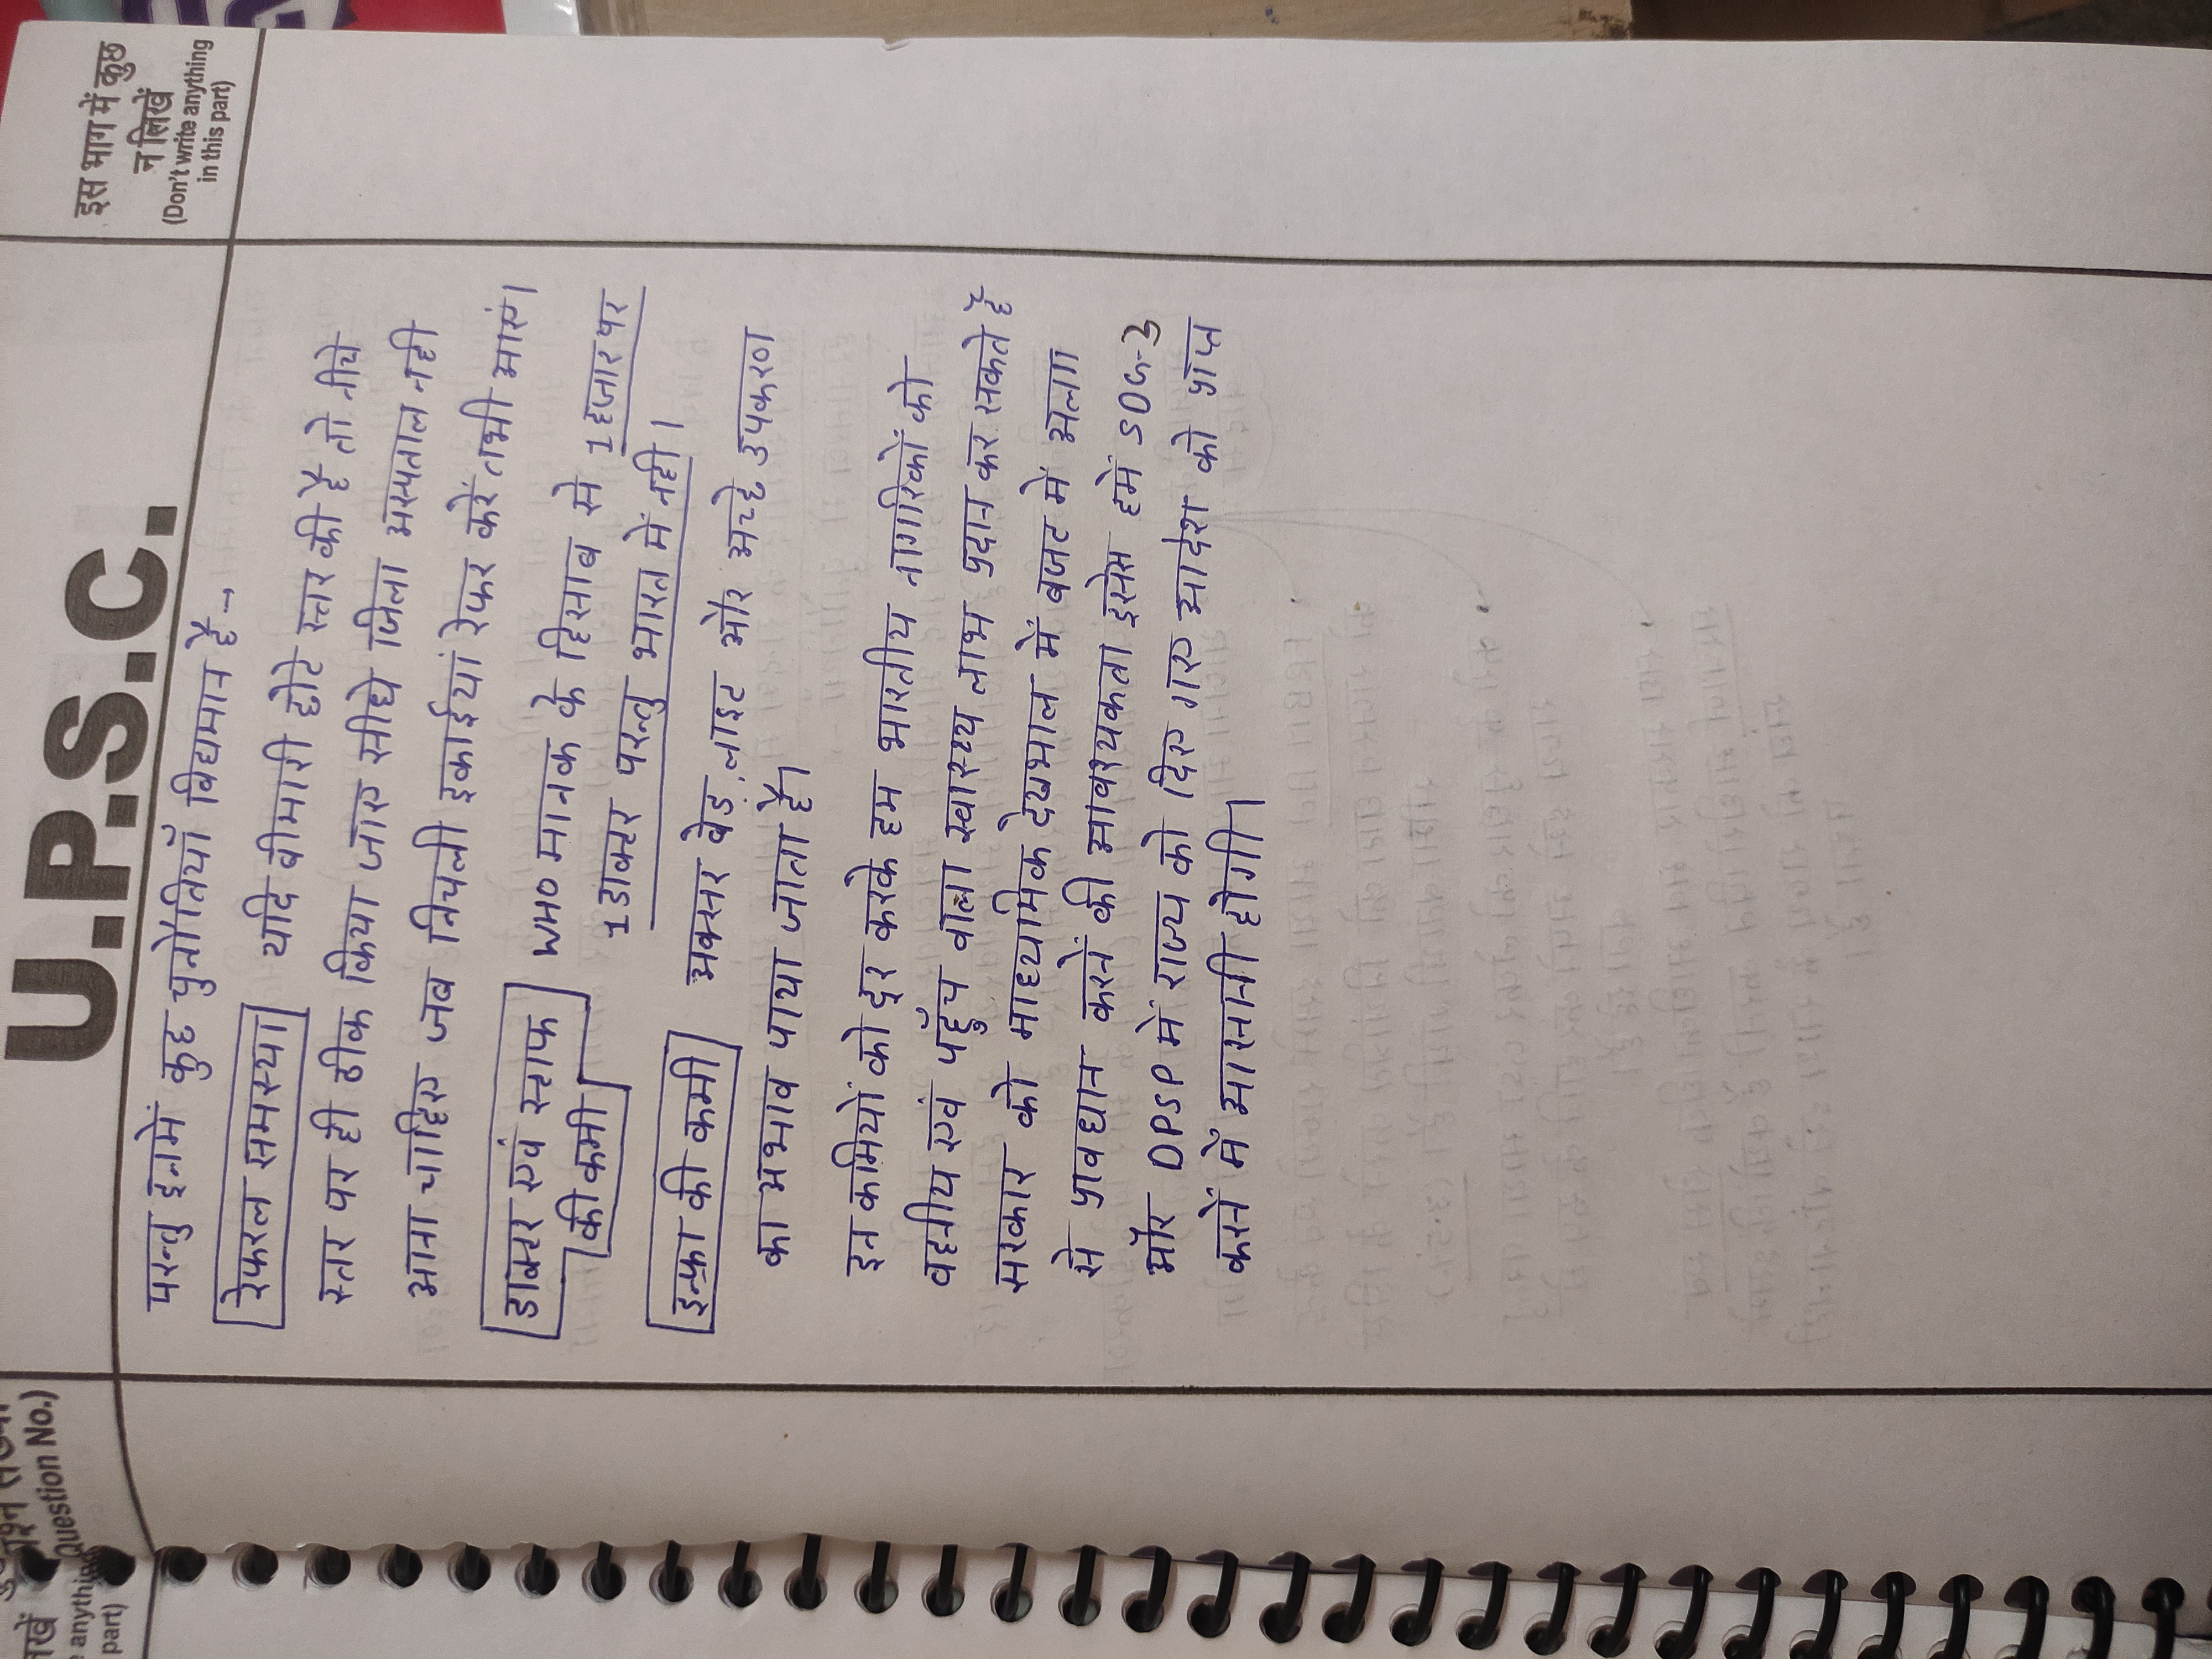 U.P.S.C.
इस भाग में कुछ
न लिखें
(Don't write anything
in this part)
Question No.)
anything
part)
परन्तु इनमें कुछ चुनौतियाँ विद्यमान है→
रेफरल समस्या यदि बीमारी छोटे स्तर की है तो नीचे
स्तर पर ही ठीक किया जाए सीधे जिला अस्पताल नही
आना चाहिए जब निचली इकाईयां रेफर करें तभी आएं।
डाक्टर एवं स्टाफ की कमी WHO मानक के हिसाब से 1 हजार पर
1 डाक्टर परन्तु भारत में नही।
इन्फ्रा की कमी अक्सर बेड, लाइट और अच्छे उपकरण
का अभाव पाया जाता है।
इन कमियों को दूर करके हम भारतीय नागरिकों को
वहनीय एवं पहुँच वाला स्वास्थ्य लाभ प्रदान कर सकते है
सरकार को माध्यमिक देखभाल में बजट में अलग
से प्रावधान करनें की आवश्यकता इससे हमें SDG-3
और DPSP में राज्य को दिए गए आदेश को प्राप्त
करनें में आसानी होगी।